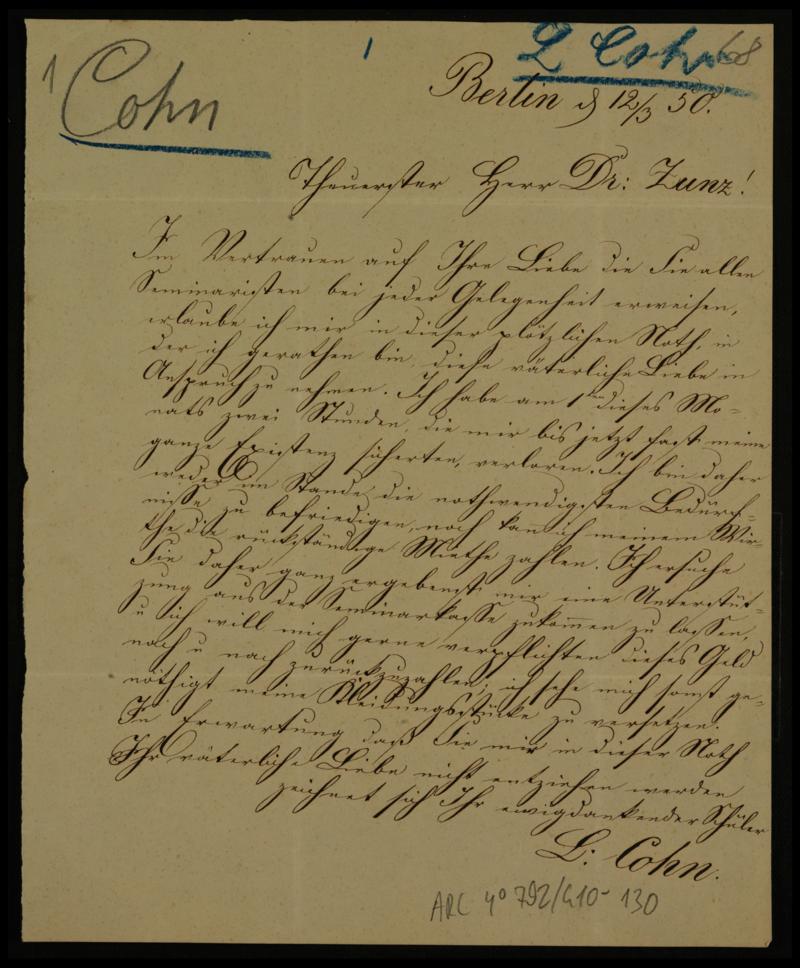 L Cohn 68
1
1 Cohn
Berlin d 12/3 50.
Theuerster Herr Dr: Zunz!
Im Vertrauen auf Ihre Liebe die Sie allen
Seminaristen bei jeder Gelegenheit erweisen,
erlaube ich mir in dieser plötzlichen Noth, in
der ich gerathen bin, diese väterliche Liebe in
Anspruch zu nehmen. Ich habe am 1ten dieses Mo-
nats zwei Stunden, die mir bis jetzt fast meine
ganze Existenz sicherten, verloren. Ich bin daher
weder im Stande die nothwendigsten Bedürf-
nisse zu befriedigen, noch kan ich meinem Wir-
the die rückständige Miethe zahlen. Ich ersuche
Sie daher ganz ergebenst mir eine Unterstüt-
zung aus der Seminarkasse zukomen zu lassen,
u ich will mich gerne verpflichten dieses Geld
nach u nach zurückzuzahlen; ich sehe mich sonst ge-
nöthigt meine Kleidungsstücke zu versetzen.
In Erwartung daß Sie mir in dieser Noth
Ihr väterliche Liebe nicht entziehen werden
zeichnet sich Ihr ewigdankender Schüler
L: Cohn.
ARC 4° 792/G10-130